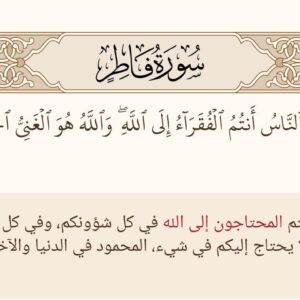 سُورَةُ فَاطِرٍ
ٱلنَّاسُ أَنتُمُ ٱلْفُقَرَآءُ إِلَى ٱللَّهِ ۖ وَٱللَّهُ هُوَ ٱلْغَنِىُّ
المحتاجون إلى الله في كل شؤونكم، وفي كل
يحتاج إليكم في شيء، المحمود في الدنيا